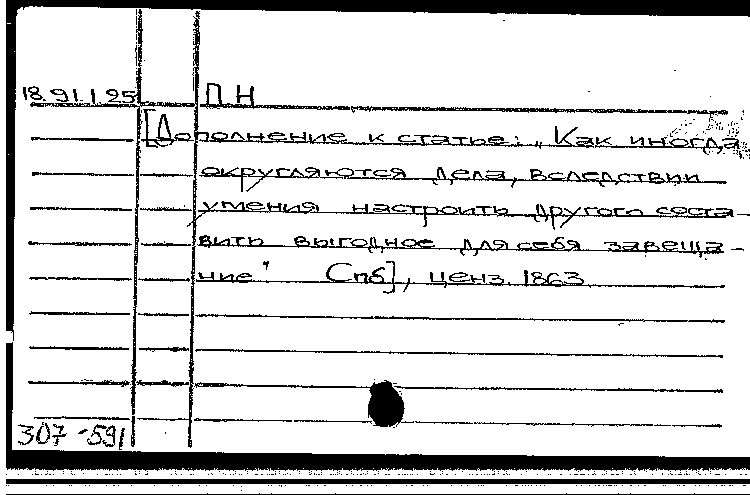 18.91.1.25 П Н
[Дополнение к статье: „Как иногда
округляются дела, вследствии
умения настроить другого соста-
вить выгодное для себя завеща-
ние" Спб], ценз. 1863
307-591